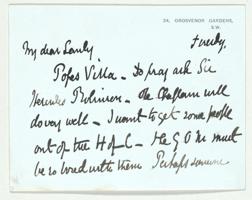 24, GROSVENOR GARDENS,
S.W.
Tuesday,
My dear
Popes Villa - Do pray ask Sir
Hercules Robinson - The Chaplain will
do very well - I want to get some people
out of the H of C - The G O M must
be so bored with them Perhaps someone